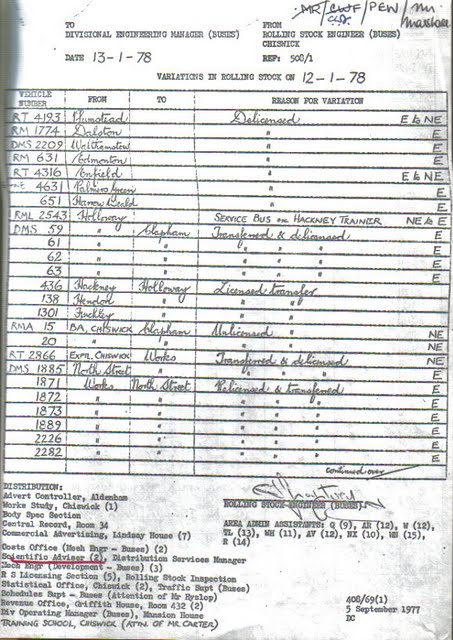 MR/CWF/PEW/Mr
Marshall
TO FROM
DIVISIONAL ENGINEERING MANAGER (BUSES) ROLLING STOCK ENGINEER (BUSES)
CHISWICK
DATE 13-1-78 REF: 500/1
VARIATIONS IN ROLLING STOCK ON 12-1-78
VEHICLE NUMBER FROM TO REASON FOR VARIATION
RT 4193 Plumstead Delicensed E to NE
RM 1774 Dalston " E
DMS 2209 Walthamstow " E
RM 631 Edmonton " E
RT 4316 Enfield " E to NE
4631 Palmers Green " E
651 Harrow Weald " E
RML 2543 Holloway SERVICE BUS ex HACKNEY TRAINER NE to E
DMS 59 " Clapham Transferred & delicensed E
61 " " " " " E
62 " " " " " E
63 " " " " " E
436 Hackney Holloway Licensed transfer
138 Hendon " " "
1301 Finchley " " "
RMA 15 BA, CHISWICK Clapham Unlicensed " NE
20 " " " " NE
RT 2866 EXPTL, CHISWICK Works Transferred & delicensed NE
DMS 1885 North Street " " " " E
1871 Works North Street Relicensed & transferred E
1872 " " " " " E
1873 " " " " " E
1889 " " " " " E
2226 " " " " " E
2282 " " " " " E
continued over
DISTRIBUTION:
Advert Controller, Aldenham
Works Study, Chiswick (1)
Body Spec Section
Central Record, Room 34
Commercial Advertising, Lindsay House (7)
Costs Office (Mech Engr - Buses) (2)
Scientific Adviser (2), Distribution Services Manager
Mech Engr (Development - Buses) (3)
R S Licensing Section (5), Rolling Stock Inspection
Statistical Office, Chiswick (2), Traffic Supt (Buses)
Schedules Supt - Buses (Attention of Mr Hyslop)
Revenue Office, Griffith House, Room 432 (2)
Div Operating Manager (Buses), Mansion House
TRAINING SCHOOL, CHISWICK (ATTN. OF MR CARTER)
ROLLING STOCK ENGINEER (BUSES)
AREA ADMIN ASSISTANTS: Q (9), AR (12), W (12),
TL (13), WH (11), AV (12), HX (10), HN (15),
R (14)
408/69(1)
5 September 1977
DC